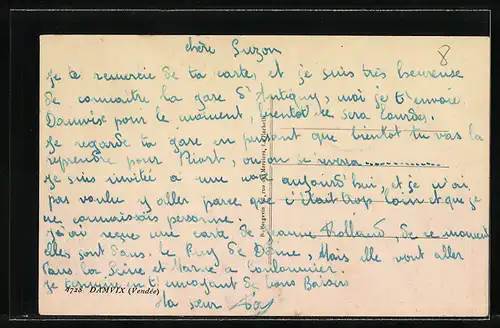 chère Suzon
8
Je te remercie de ta carte, et je suis très heureuse
de connaître la gare d'Antigny, moi je t'envoie
Damvix pour le moment, bientôt ce sera Lourdes.
Je regarde ta gare en pensant que bientôt tu vas la
reprendre pour Niort, où on se verra
Je suis invitée à une noce aujourd'hui et je n'ai
pas voulu y aller parce que c'était trop loin et que je
ne connaissais personne.
J'ai reçue une carte de Jeanne Rolland, de ce moment
elles sont dans le Puy de Dôme, Mais elle vont aller
dans la Seine et Marne à Coulommier.
Je termine en t'envoyant de bons Baisers
Ta sœur
4728 DAMVIX (Vendée)